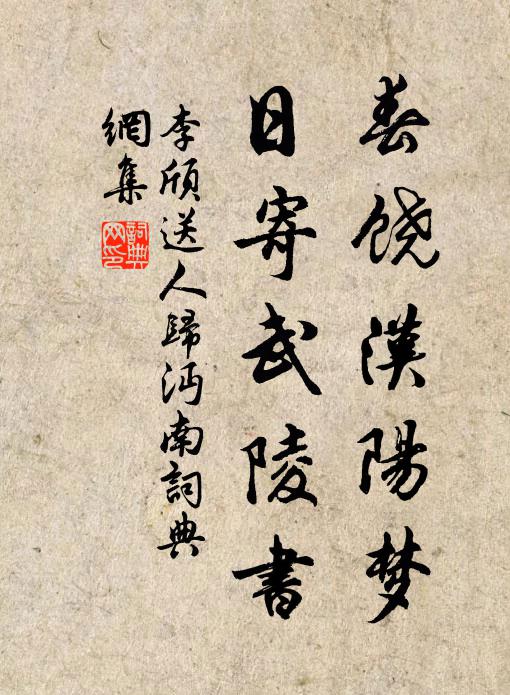 春饶漢陽梦
日寄武陵書
李頎送人歸沔南詞典
網集
詞典网印